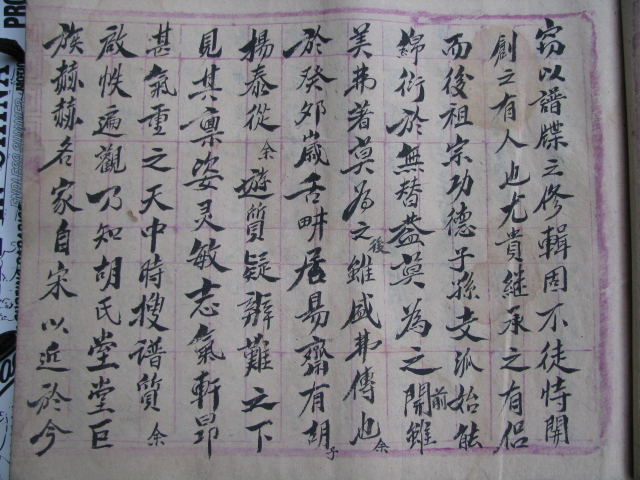 窃以譜牒之修輯固不徒恃開
創之有人也尤貴継承之有侣
而後祖宗功德子孫支派始能
綿衍於無替盖莫為之開前雖
美弗著莫為之後雖盛弗傳也余
於癸夘歲舌畊居易齋有胡子
揚泰從余遊質疑辨難之下
見其禀姿灵敏志氣軒昂
甚氣重之天中時搜谱質余
啟帙遍觀乃知胡氏堂堂巨
族赫赫名家自宋以近於今